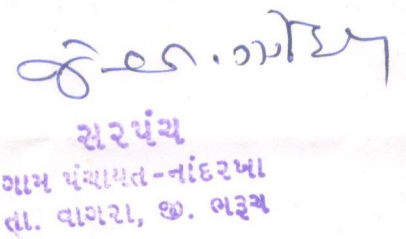 સરપંચ
ગામ પંચાયત-નાંદરખા
તા. વાગરા, જી. ભરૂચ